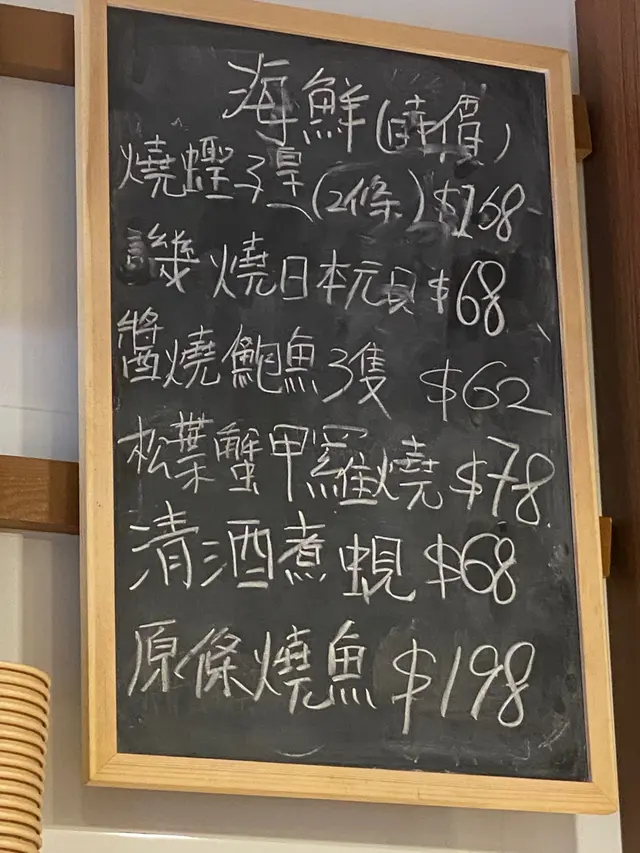 海鮮(時價)
燒蟶子皇(2條) $168
譏燒日本元貝 $68
醬燒鮑魚3隻 $62
松葉蟹甲羅燒 $78
清酒煮蜆 $68
原條燒魚 $198